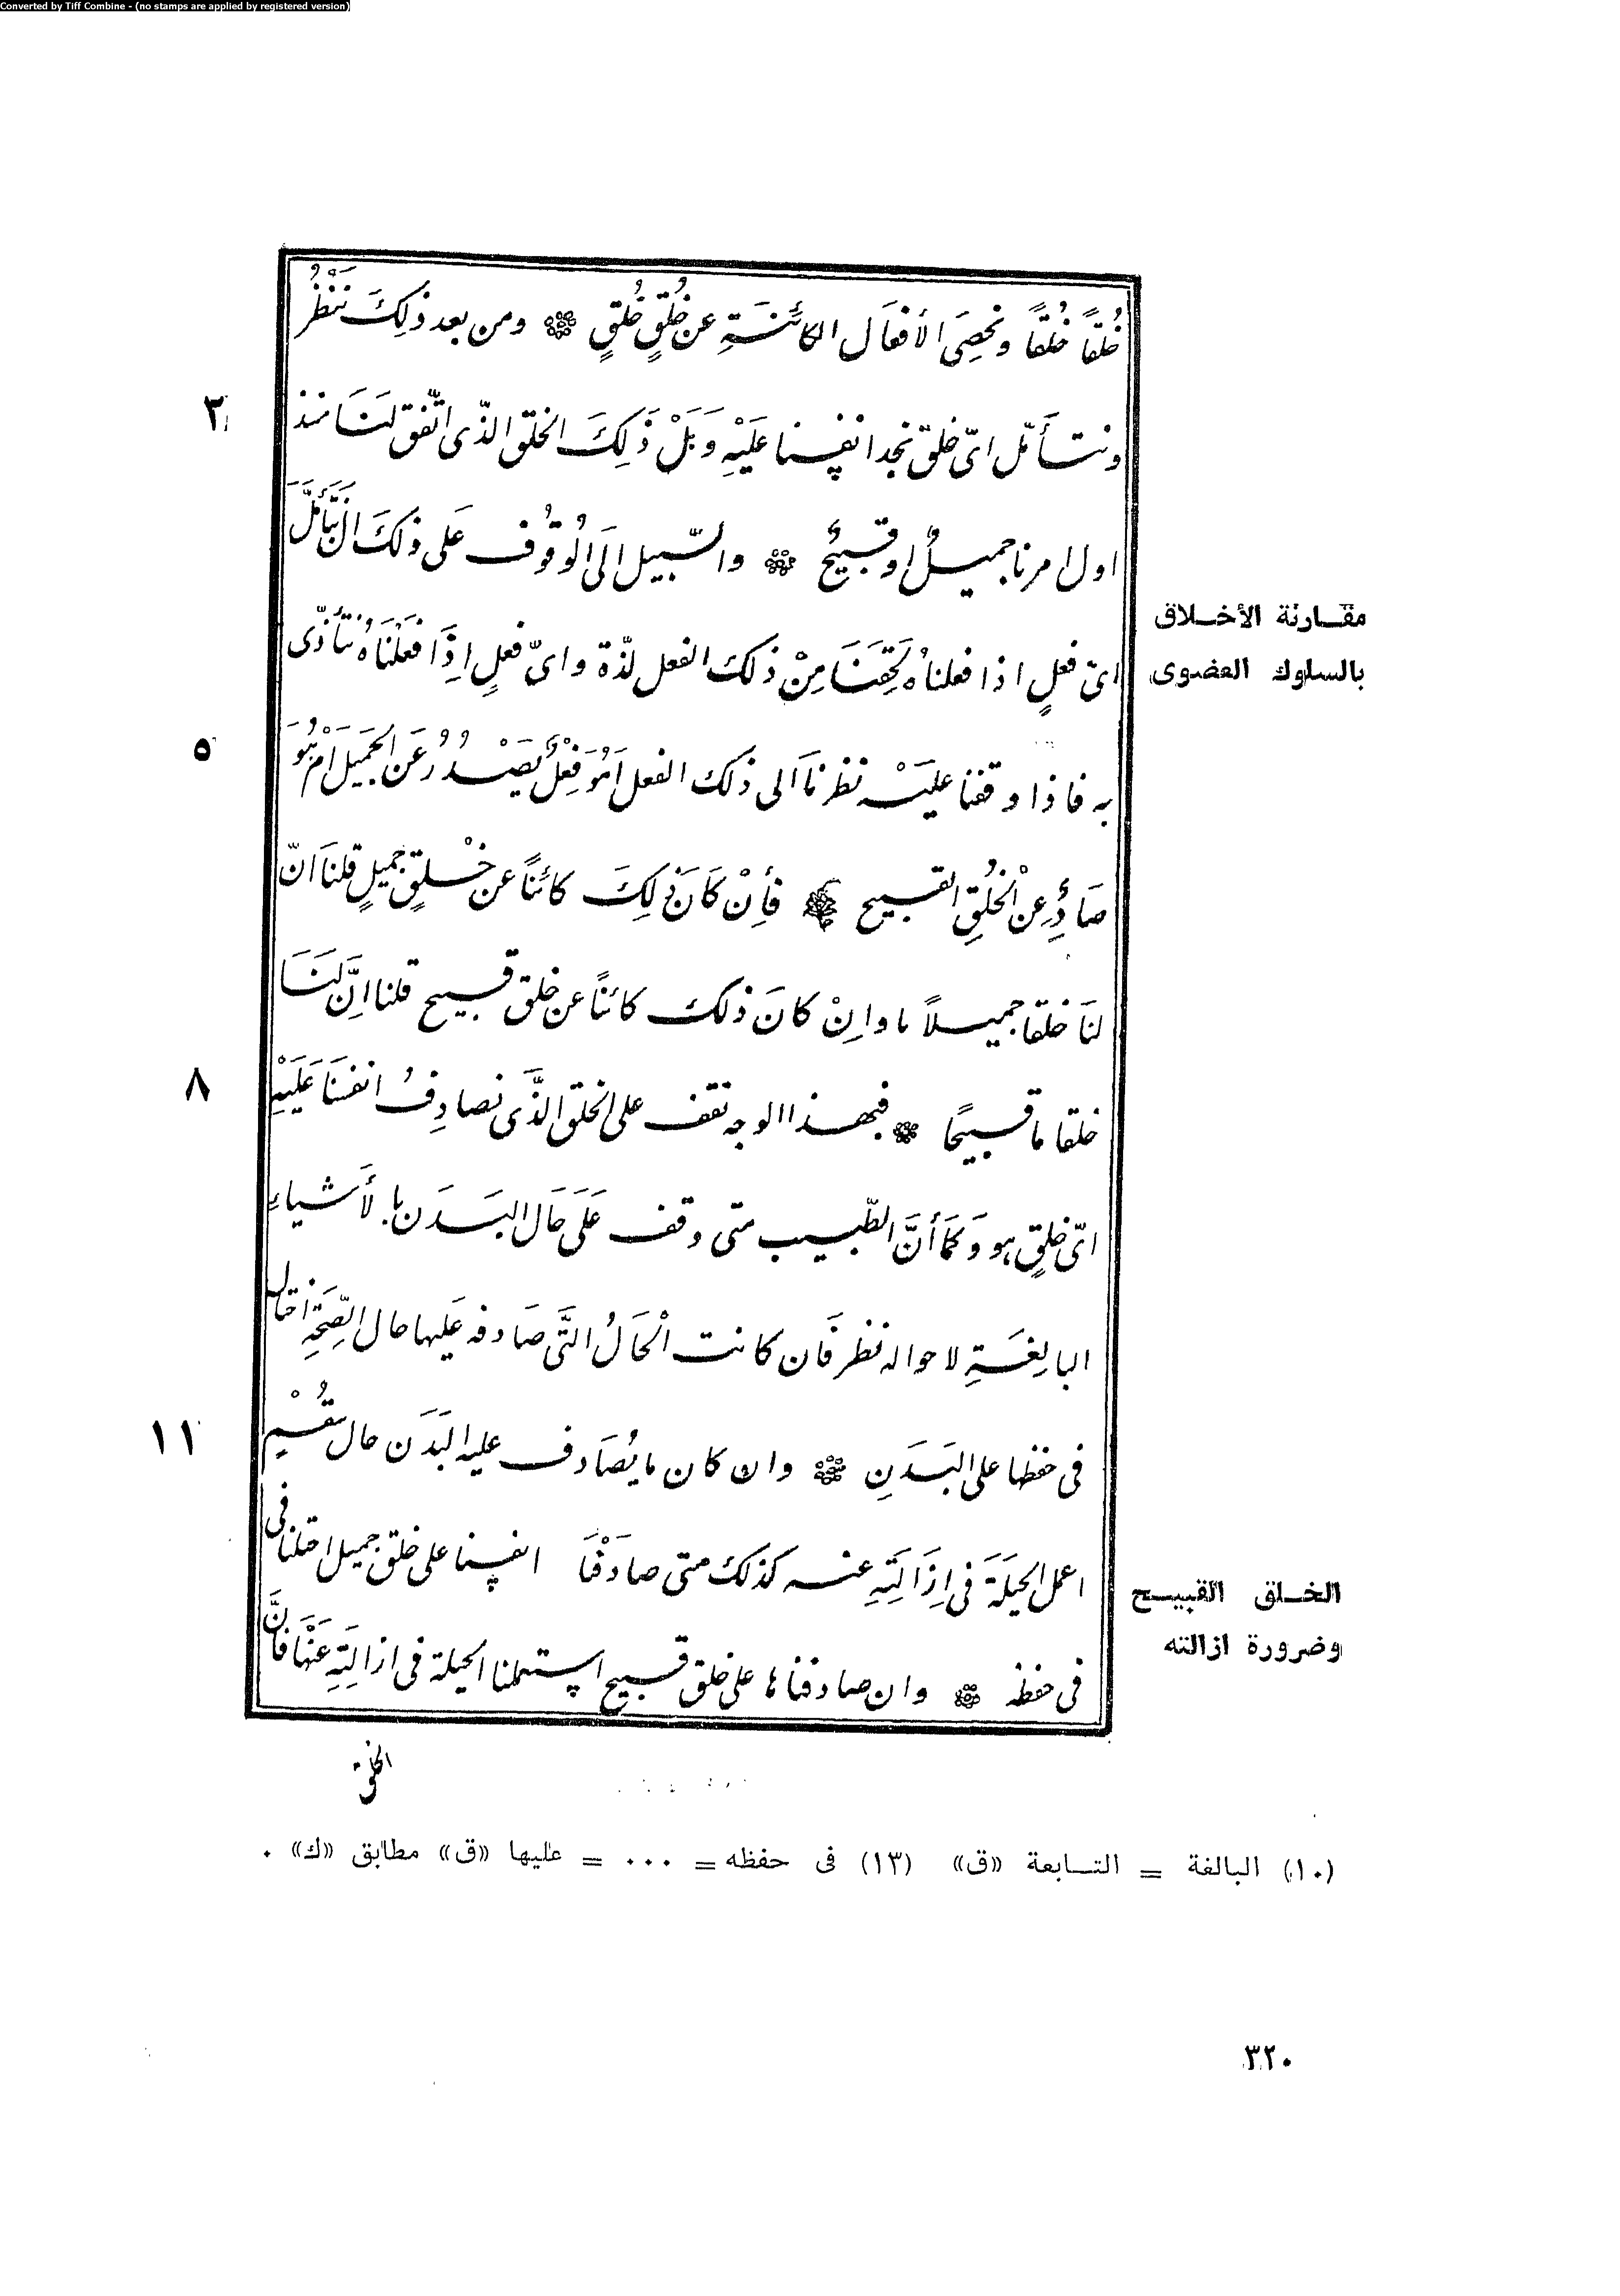 Converted by Tiff Combine - (no stamps are applied by registered version)
خُلقاً خُلقاً ونحصِىَ الأفعَال الكائنَةِ عن خُلقٍ خُلقٍ ومن بعد ذلِكَ نَنْظُر
٣
ونتأمّل اىّ خلق نجد انفسنا عَلَيْهِ وَبَلْ ذَلِكَ الخلق الذّى اتّفق لنَا منذ
اول امرنا جميلٌ او قبيحٌ والسّبيل اِلَى الوُقُوف عَلى ذلكَ ان نَتَأَمَّلَ
مقارنة الأخلاق
بالسلوك العضوى
اىّ فعلٍ اذا فعلناهُ لَحِقَنَا مِنْ ذلك الفعل لذّة واىّ فعلٍ اِذَا فَعَلْنَاهُ نتأذّى
٥
به فاذا وقفنا عليْه نظرنَا الى ذلك الفعل اَهُوَ فِعْلٌ يَصْدُرُ عَن الجَمِيل اَمْ هُوَ
صَادِر عِنْ الخُلقِ القبيح فأِنْ كَانَ ذلِكَ كائنًا عن خْلقٍ جميلٍ قلنَا انّ
لنَا خلقا جميلاً ما واِنْ كانَ ذلك كائنًا عن خلق قبيح قلنا اِنَّ لنَا
٨
خلقا ما قبيحًا فبهذا الوجه نقف على الخلق الذَّى نصادِفُ انفسَنَا عَلَيْهِ
اىّ خلقٍ هو وَكمَا أنَّ الطّبيب متى وقف عَلَى حَال البَدَن بالأشياءِ
البالِغَةِ لاحواله نظر فَان كانت الْحَالُ التَّى صَادفه عَليها حال الصِّحَةِ احتال
١١
فى حفظها على البَدَنِ وان كان ما يُصَادف عليه البَدَن حال سُقْم
اعمل الحيلَةَ فى اِزَالَتِهِ عنه كذلك متى صادَفْنَا انفسنا على خلق جميل احتلنا فى
الخلق القبيح
وضرورة ازالته
فى حفظه وان صادفناها على خلق قبيح استعملنا الحيلة فى ازالَتِهِ عَنْهَا فانَّ
الخلق
(١٠) البالغة = التابعة «ق» (١٣) فى حفظه = ... = عليها «ق» مطابق «ك» .
٣٢٠